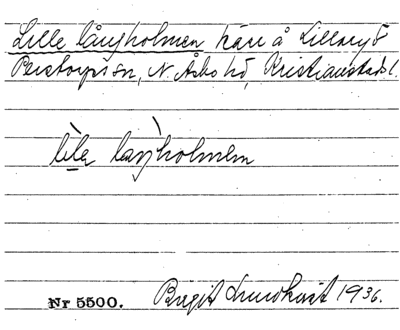 Lille långholmen kärr å Lillaryd
Perstorps sn, N. Åsbo hd, Kristianstads l.
lila långholmen
Nr 5500. Birgit Lundkvist 1936.